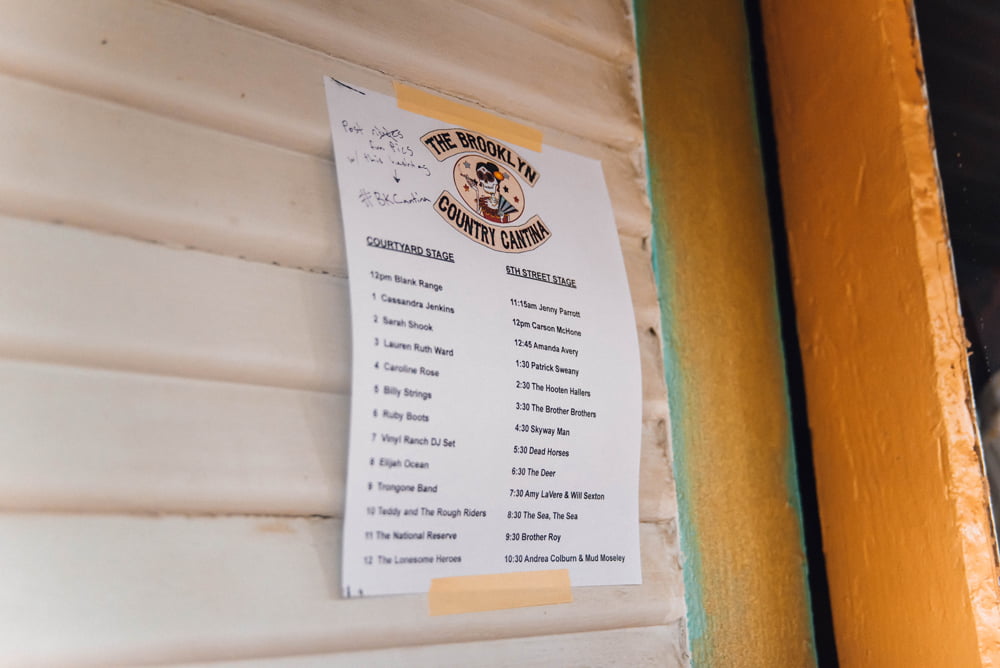 Post
fun Pics
w/ this hashtag
#BKCantina
THE BROOKLYN
COUNTRY CANTINA
COURTYARD STAGE
12pm Blank Range
1 Cassandra Jenkins
2 Sarah Shook
3 Lauren Ruth Ward
4 Caroline Rose
5 Billy Strings
6 Ruby Boots
7 Vinyl Ranch DJ Set
8 Elijah Ocean
9 Trongone Band
10 Teddy and The Rough Riders
11 The National Reserve
12 The Lonesome Heroes
6TH STREET STAGE
11:15am Jenny Parrott
12pm Carson McHone
12:45 Amanda Avery
1:30 Patrick Sweany
2:30 The Hooten Hallers
3:30 The Brother Brothers
4:30 Skyway Man
5:30 Dead Horses
6:30 The Deer
7:30 Amy LaVere & Will Sexton
8:30 The Sea, The Sea
9:30 Brother Roy
10:30 Andrea Colburn & Mud Moseley